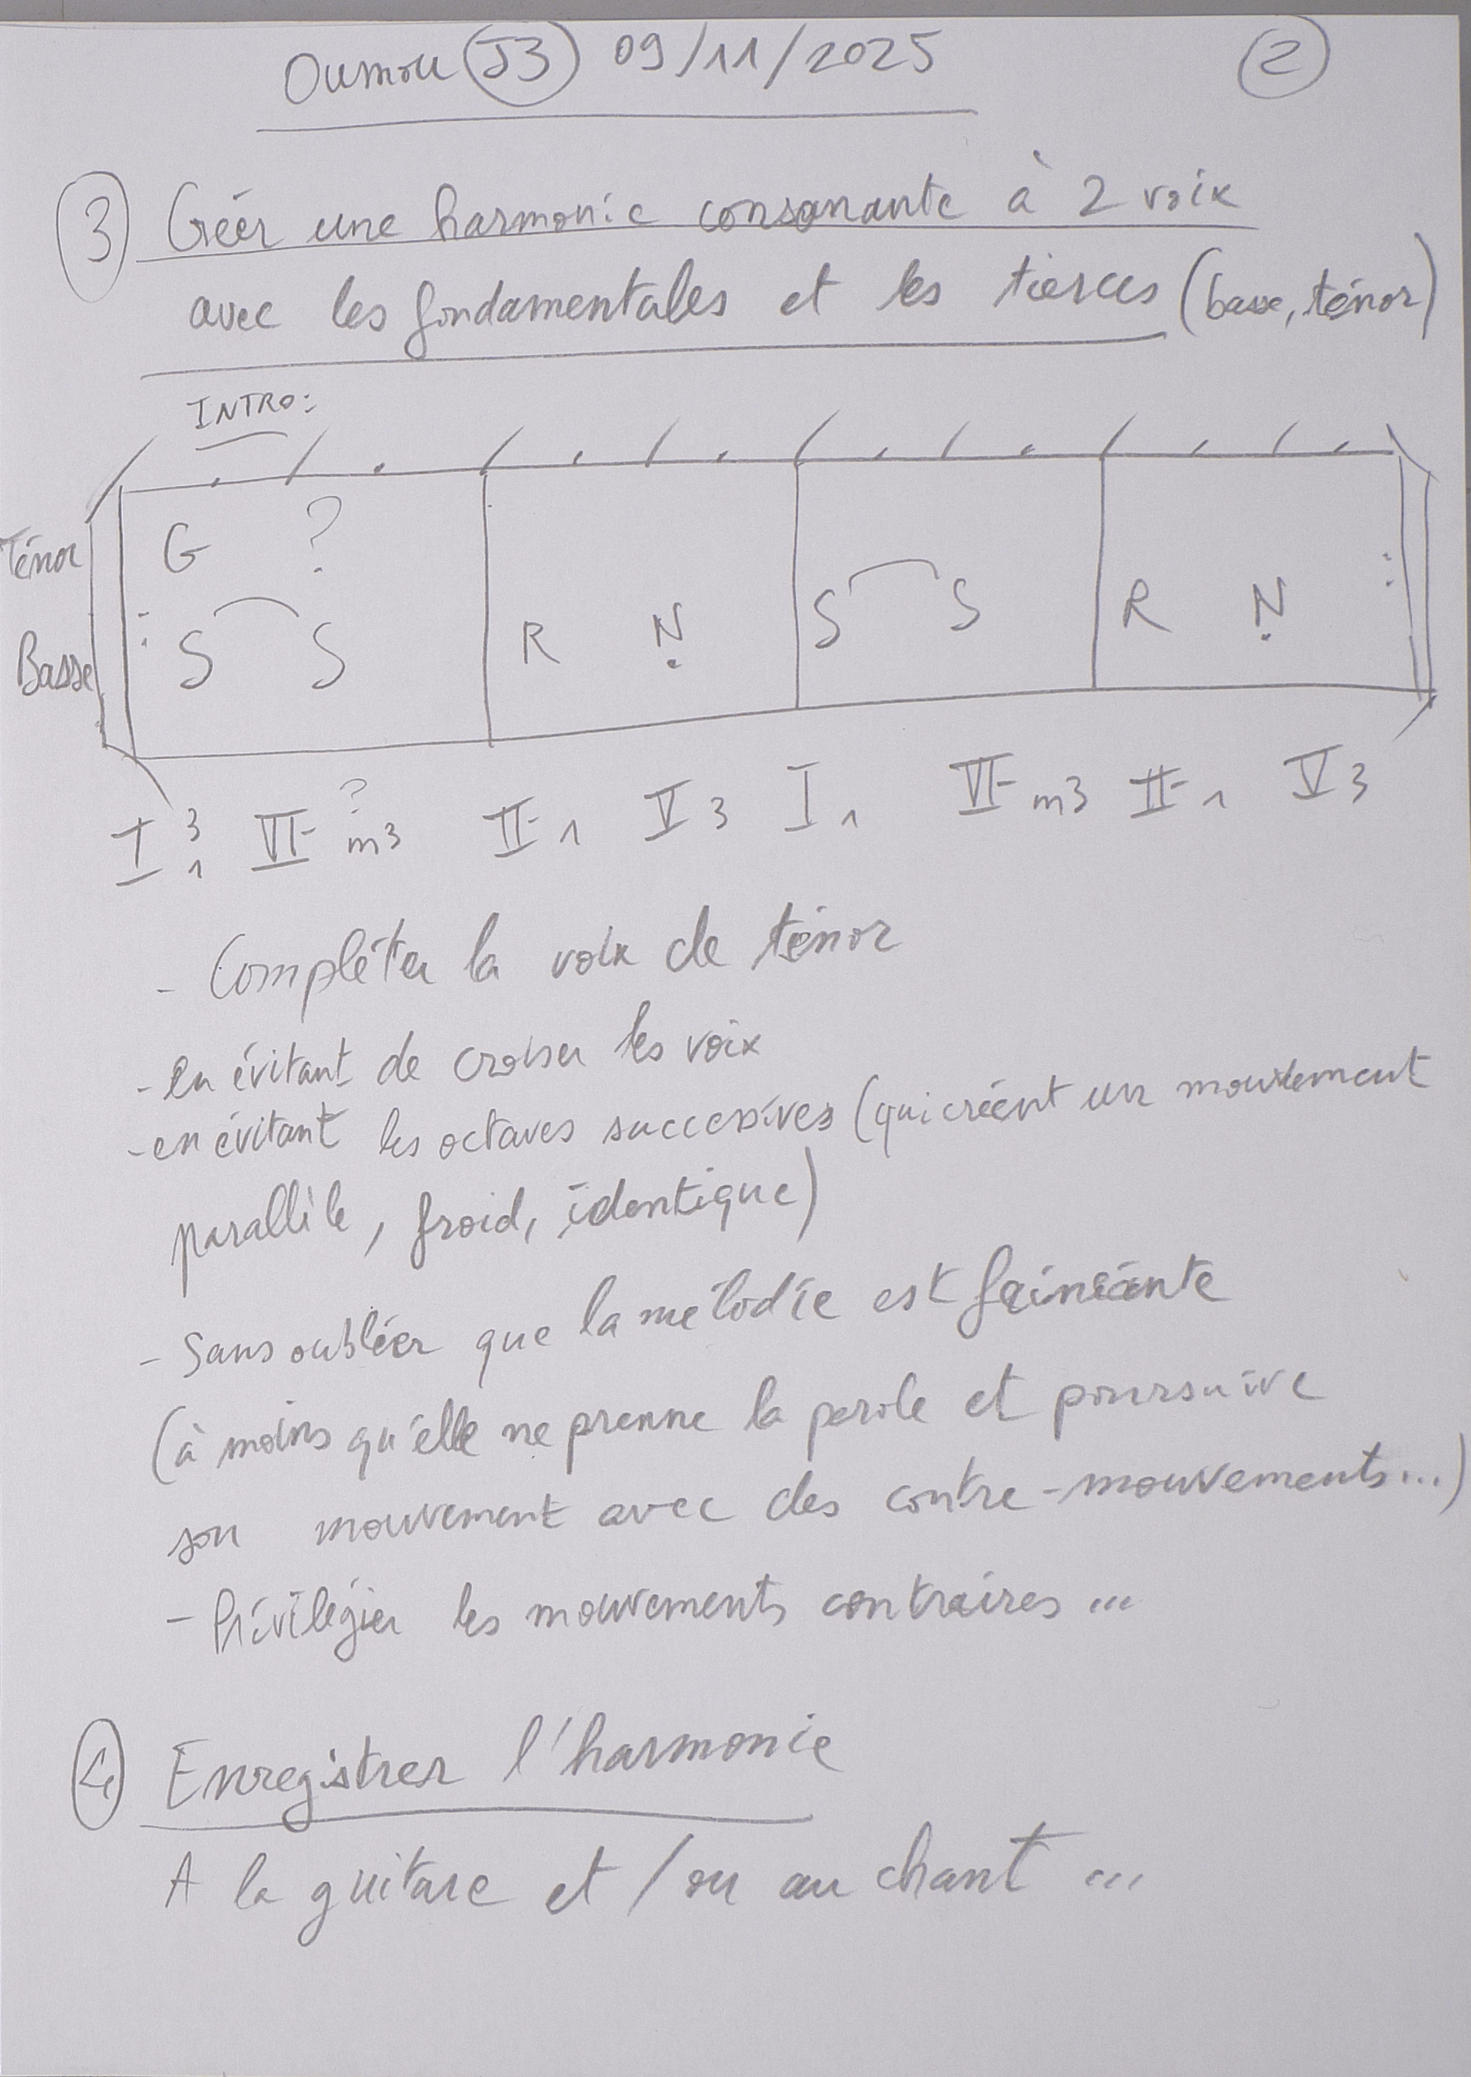 Oumou J3 09/11/2025 2
3 Créer une harmonie consonante à 2 voix
avec les fondamentales et les tierces (basse, ténor)
INTRO:
Ténor G ?
Basse : S S R N S S R N :
I 3 1 VI- ? m3 II- 1 V 3 I 1 VI- m3 II- 1 V 3
- Compléter la voix de ténor
- en évitant de croiser les voix
- en évitant les octaves successives (qui créent un mouvement
parallèle, froid, identique)
- Sans oublier que la mélodie est fainéante
(à moins qu'elle ne prenne la parole et poursuive
son mouvement avec des contre-mouvements...)
- Privilégier les mouvements contraires...
4 Enregistrer l'harmonie
A la guitare et / ou au chant ...